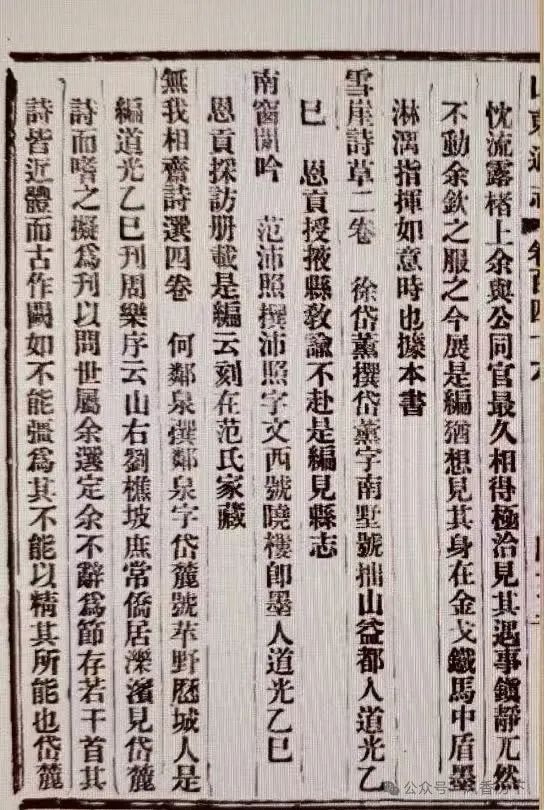 山東通志 卷百四十六
忱流露楮上余與公同官最久相得極洽見其遇事鎮靜兀然
不動余欽之服之今展是編猶想見其身在金戈鐵馬中盾墨
淋漓指揮如意時也據本書
雪崖詩草二卷 徐岱薰撰岱薰字南墅號拙山益都人道光乙
巳 恩貢授掖縣敎諭不赴是編見縣志
南窗閒吟 范沛照撰沛照字文西號曉樓卽墨人道光乙巳
恩貢採訪册載是編云刻在范氏家藏
無我相齋詩選四卷 何鄰泉撰鄰泉字岱麓號苹野歷城人是
編道光乙巳刊周樂序云山右劉樵坡庶常僑居濼濱見岱麓
詩而嗜之擬爲刊以問世屬余選定余不辭爲節存若干首其
詩皆近體而古作闕如不能彊爲其不能以精其所能也岱麓
公众号